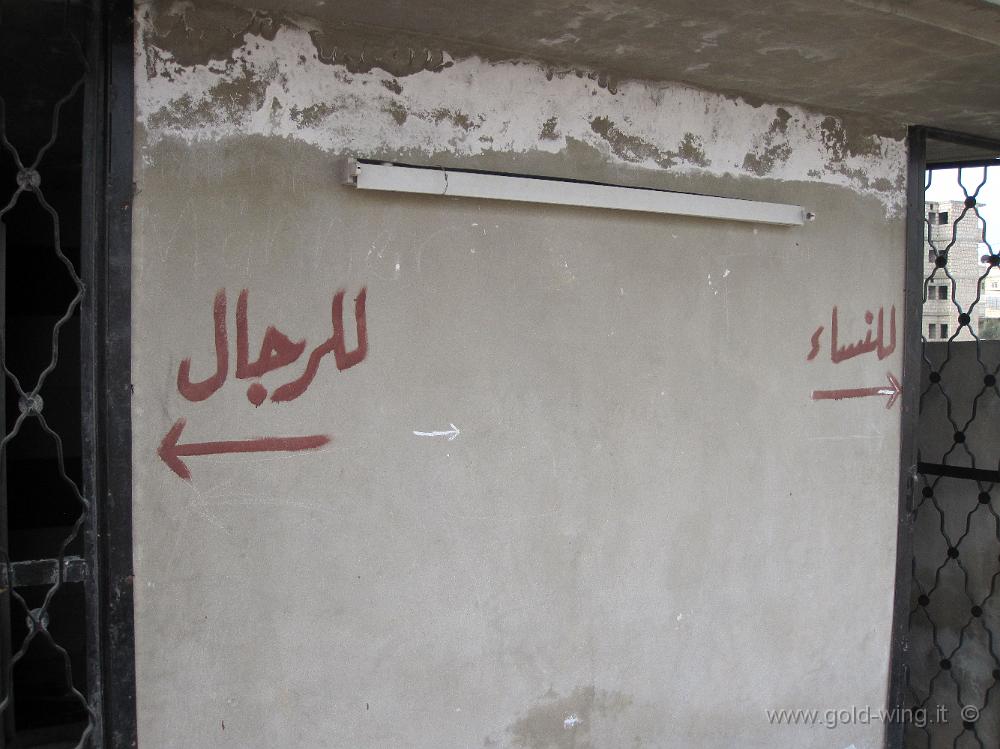 للنساء
للرجال
www.gold-wing.it ©